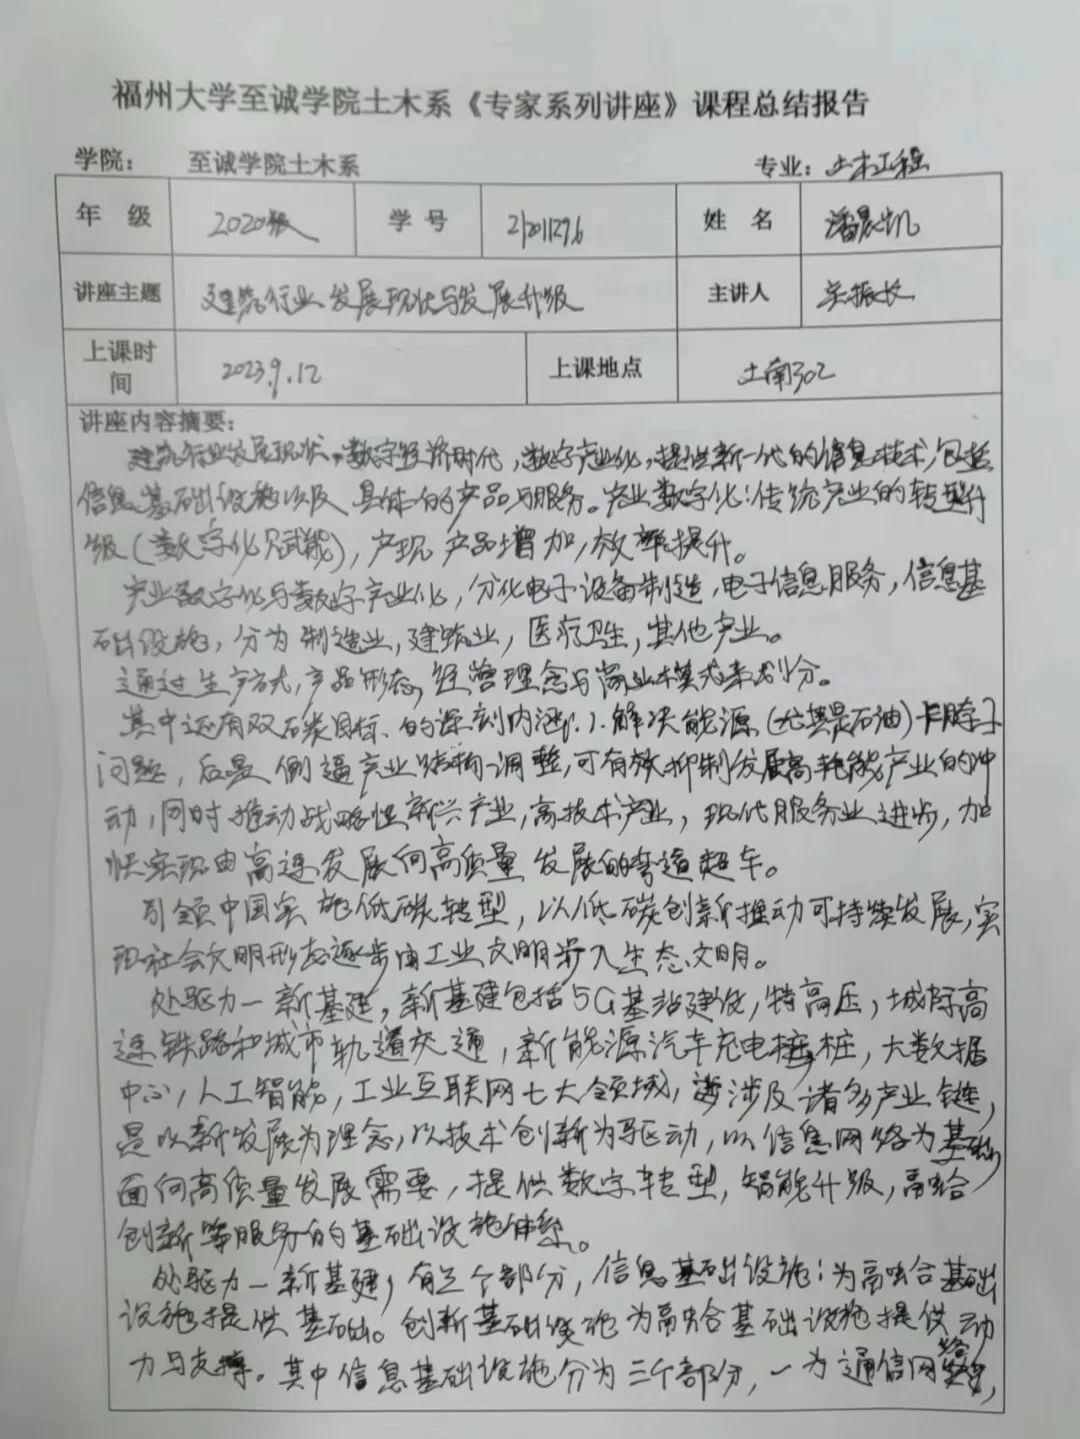 福州大学至诚学院土木系《专家系列讲座》课程总结报告
学院： 至诚学院土木系 专业：土木工程
年 级 2020级 学 号 姓 名 潘晨凯
讲座主题 建筑行业发展现状与发展升级 主讲人 振长
上课时间 2023.9.12 上课地点 土南302
讲座内容摘要：
建筑行业发展现状，数字经济时代，数字产业化，提供新一代的信息技术，包括
信息基础设施以及具体的产品与服务。产业数字化：传统产业的转型升
级（数字化赋能），产现产品增加，效率提升。
产业数字化与数字产业化，分化电子设备制造，电子信息服务，信息基
础设施，分为制造业，建筑业，医疗卫生，其他产业。
通过生产方式，产品形态，经营理念与商业模式来划分。
其中还有双碳目标的深刻内涵。1.解决能源（尤其是石油）卡脖子
问题，后是倒逼产业结构调整，可有效抑制发展高耗能产业的冲
动，同时推动战略性新兴产业，高技术产业，现代服务业进步，加
快实现由高速发展向高质量发展的弯道超车。
引领中国实施低碳转型，以低碳创新推动可持续发展，实
现社会文明形态逐步由工业文明步入生态文明。
处驱力一新基建，新基建包括5G基站建设，特高压，城际高
速铁路和城市轨道交通，新能源汽车充电桩，大数据
中心，人工智能，工业互联网七大领域，涉及诸多产业链，
是以新发展为理念，以技术创新为驱动，以信息网络为基础，
面向高质量发展需要，提供数字转型，智能升级，融合
创新等服务的基础设施体系。
处驱力一新基建，有三个部分，信息基础设施：为融合基础
设施提供基础。创新基础设施为融合基础设施提供动
力与支撑。其中信息基础设施分为三个部分，一为通信网络，